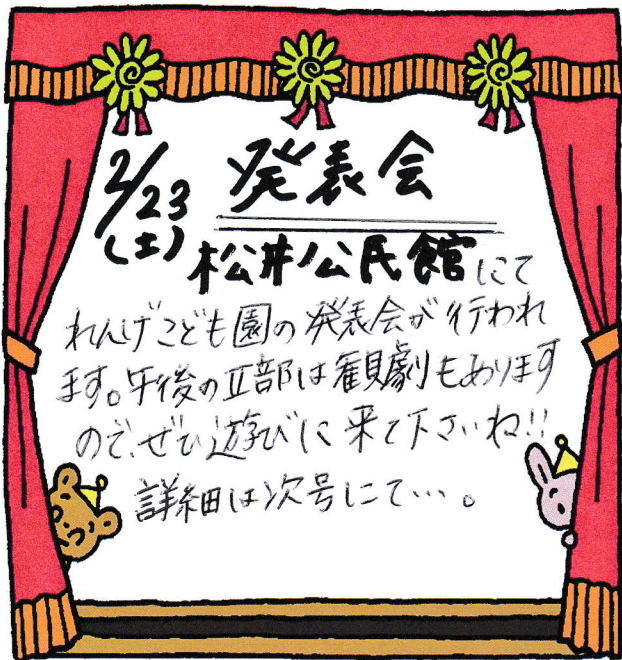 2/23(土) 発表会
松井公民館にて
れんげこども園の発表会が行われ
ます。午後のⅡ部は観劇もあります
ので、ぜひ遊びに来て下さいね!!
詳細は次号にて…。